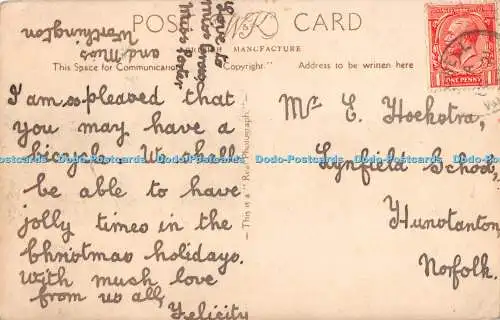 POST CARD
BRITISH MANUFACTURE
This Space for Communication
"Copyright."
Address to be written here
I am so pleased that
you may have a
bicycle. We shall
be able to have
jolly times in the
Christmas holidays.
With much love
from us all,
Felicity
Love to
Miss
Miss Porter
and Miss
Worthington
This is a "Real Photograph"
Mr E. Hoekstra,
Lynfield School,
Hunstanton,
Norfolk.
ONE PENNY
Dodo-Postcards Dodo-Postcards Dodo-Postcards Dodo-Postcards Dodo-Postcards